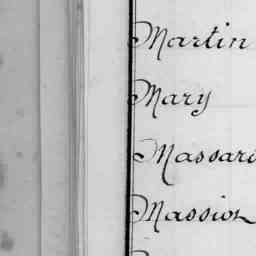 Martin
Mary
Massard
Massion